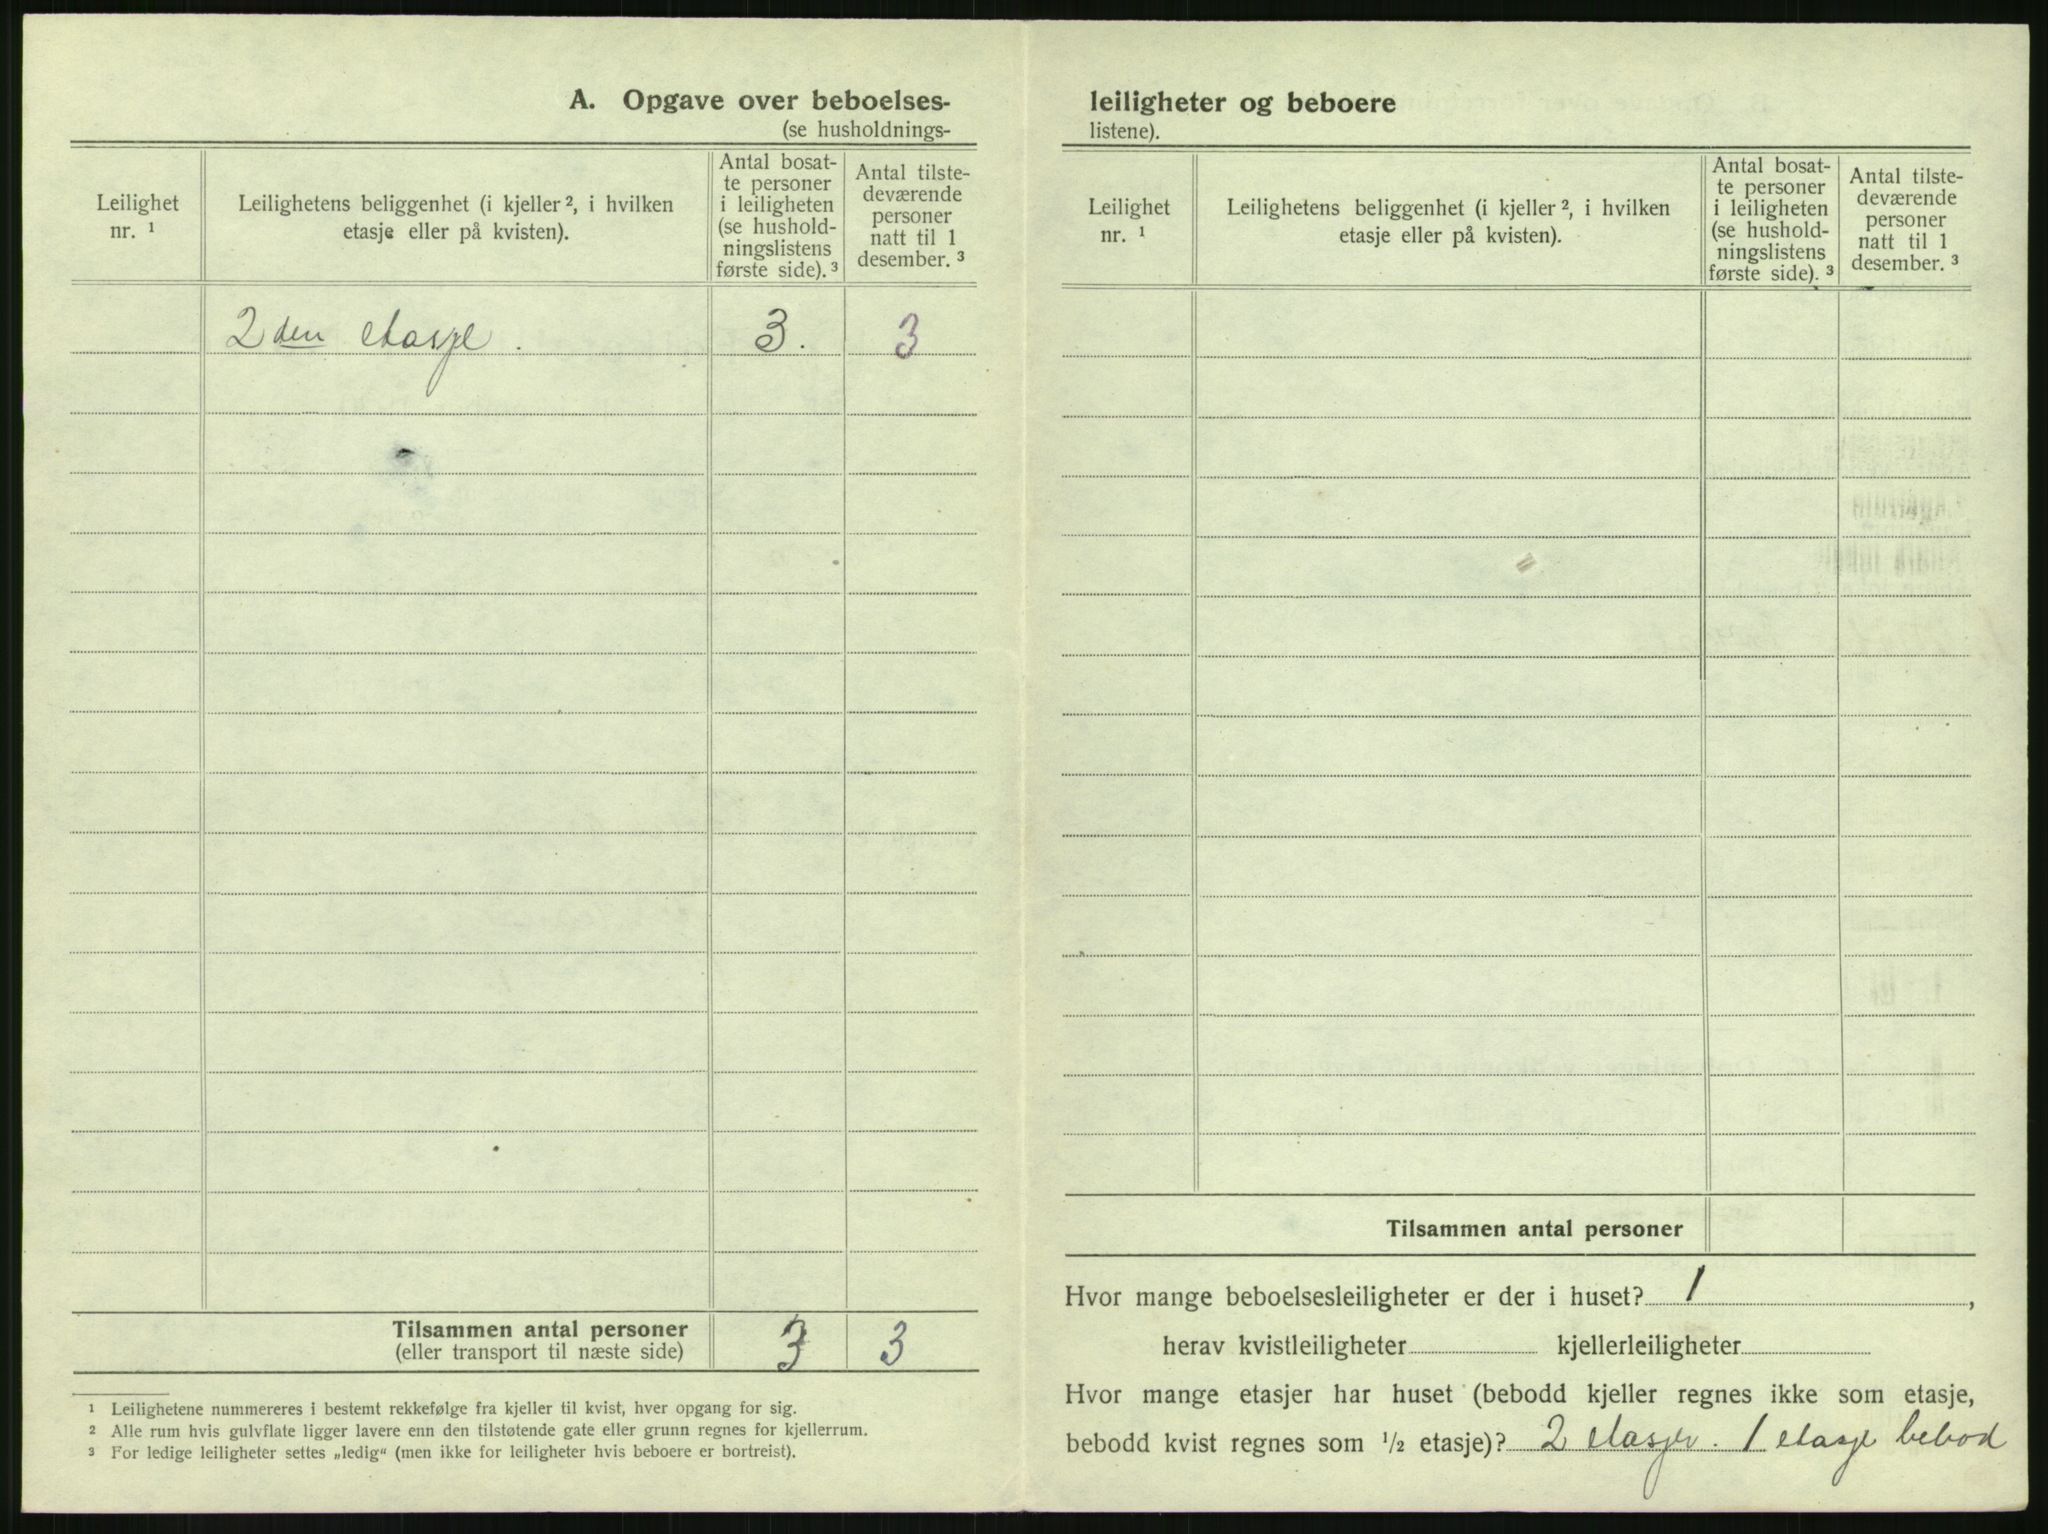 A. Opgave over beboelses-
(se husholdnings-
Leilighet
nr. ¹
Leilighetens beliggenhet (i kjeller ², i hvilken
etasje eller på kvisten).
Antal bosat-
te personer
i leiligheten
(se hushold-
ningslistens
første side). ³
Antal tilste-
deværende
personer
natt til 1
desember. ³
2den etasje. 3. 3
Tilsammen antal personer 3 3
(eller transport til næste side)
¹ Leilighetene nummereres i bestemt rekkefølge fra kjeller til kvist, hver opgang for sig.
² Alle rum hvis gulvflate ligger lavere enn den tilstøtende gate eller grunn regnes for kjellerrum.
³ For ledige leiligheter settes „ledig“ (men ikke for leiligheter hvis beboere er bortreist).
leiligheter og beboere
listene).
Leilighet
nr. ¹
Leilighetens beliggenhet (i kjeller ², i hvilken
etasje eller på kvisten).
Antal bosat-
te personer
i leiligheten
(se hushold-
ningslistens
første side). ³
Antal tilste-
deværende
personer
natt til 1
desember. ³
Tilsammen antal personer
Hvor mange beboelsesleiligheter er der i huset? 1,
herav kvistleiligheter kjellerleiligheter
Hvor mange etasjer har huset (bebodd kjeller regnes ikke som etasje,
bebodd kvist regnes som ½ etasje)? 2 etasjer. 1 etasje bebod